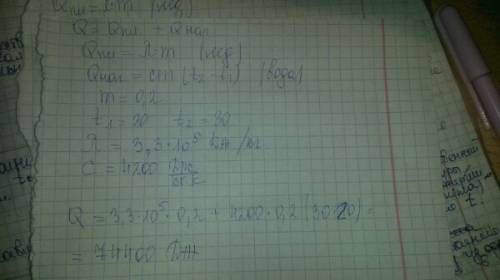 Qпл = λ·m (лед)
Q = Qпл + Qнаг
Qпл = λ·m (лед)
Qнаг = cm (t₂ - t₁) (вода)
m = 0,2
t₁ = 20 t₂ = 30
λ = 3,3·10⁵ Дж/кг
c = 4200 Дж/кг К
Q = 3,3·10⁵·0,2 + 4200·0,2 (30 20) =
= 74400 Дж